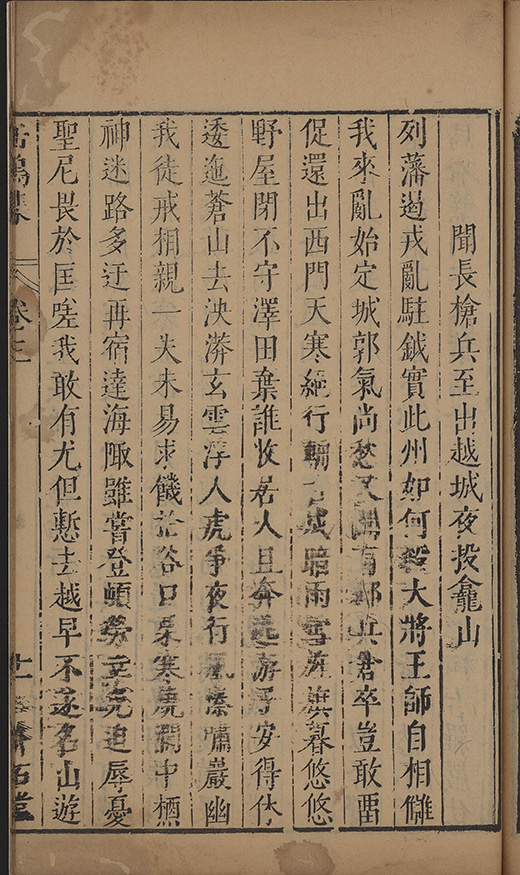 聞長槍兵至出越城夜投龕山
列藩遏戎亂駐鉞實此州如何殺大將王師自相讎
我來亂始定城郭氣尚愁又聞有鄰兵倉卒豈敢畱
促還出西門天寒絕行輈戍暗雨雪旌旗暮悠悠
野屋閉不守澤田棄誰收居人且奔游子安得休
逶迤蒼山去泱漭玄雲浮人虎爭夜行風榛嘯巖幽
我徒戒相親一失未易求饑谷口寒燒澗中槱
神迷路多迂再宿達海陬雖嘗登頓勞幸免迫辱憂
聖尼畏於匡嗟我敢有尤但慙去越早不遂名山遊
缶鳴集 卷 十一